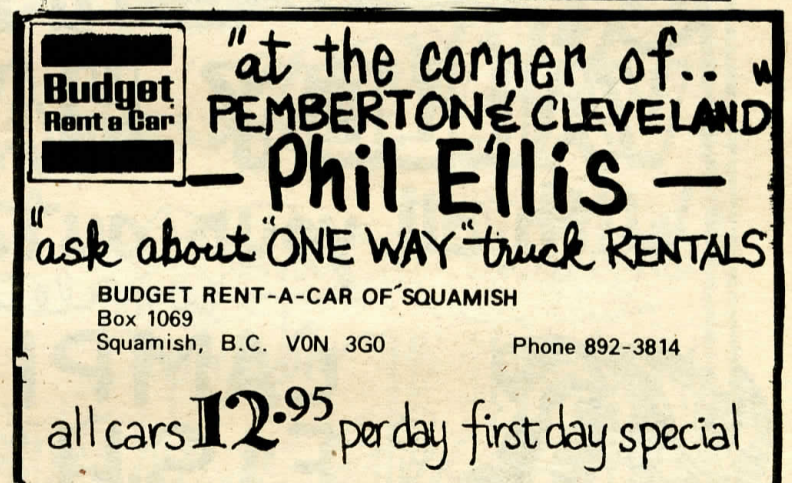 Budget
Rent a Car
"at the corner of.. "
PEMBERTON & CLEVELAND
— Phil Ellis —
"ask about "ONE WAY" truck RENTALS
BUDGET RENT-A-CAR OF SQUAMISH
Box 1069
Squamish, B.C. V0N 3G0 Phone 892-3814
all cars 12.95 per day first day special